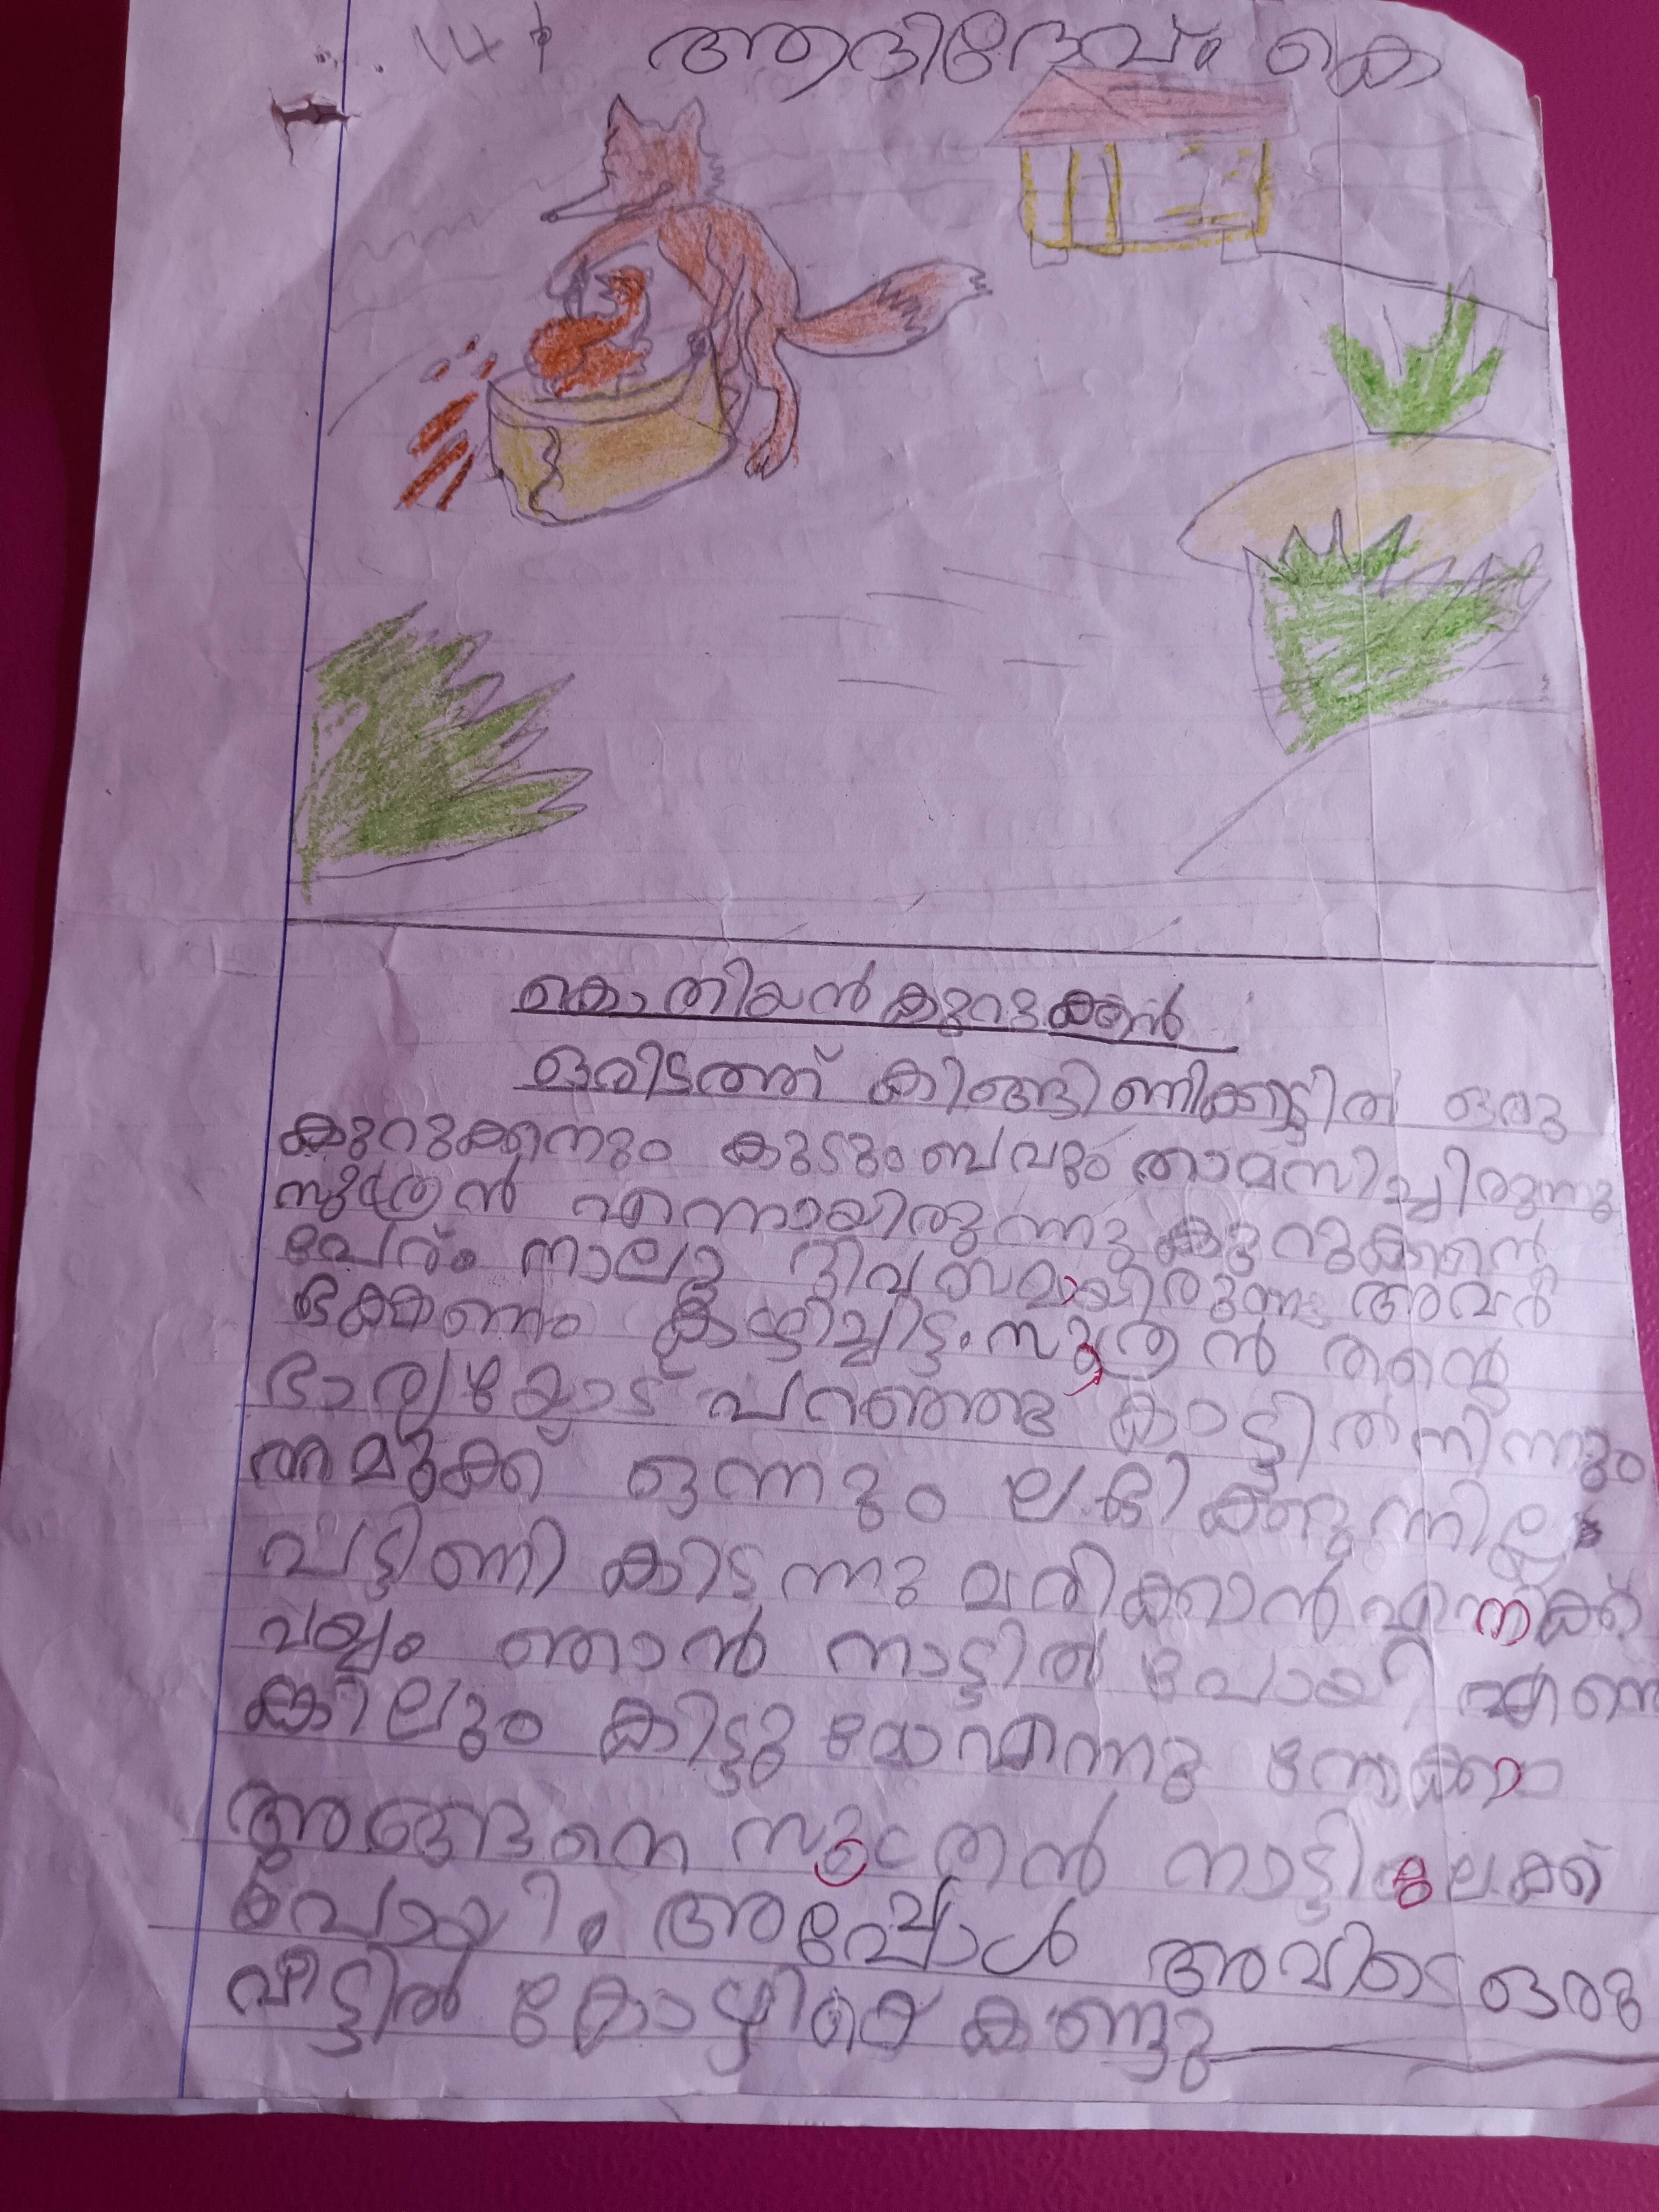 ആദിദേവ്. കെ
കൊതിയൻ കുറുക്കൻ
ഒരിടത്ത് കിങ്ങിണിക്കാട്ടിൽ ഒരു
കുറുക്കനും കുടുംബവും താമസിച്ചിരുന്നു
സൂത്രൻ എന്നായിരുന്നു കുറുക്കൻെറ
പേര്. നാലു ദിവസമായിരുന്നു അവർ
ഭക്ഷണം കഴിച്ചിട്ട്. സൂത്രൻ തൻെറ
ഭാര്യയോട് പറഞ്ഞു കാട്ടിൽ നിന്നും
നമുക്ക് ഒന്നും ലഭിക്കുന്നില്ല
പട്ടിണി കിടന്നു മരിക്കാൻ എനിക്ക്
വയ്യം ഞാൻ നാട്ടിൽ പോയി എന്തെ
ങ്കിലും കിട്ടുമോ എന്നു നോക്കാ
അങ്ങനെ സൂത്രൻ നാട്ടിലേക്ക്
പോയി. അപ്പോൾ അവിടെ ഒരു
വീട്ടിൽ കോഴിയെ കണ്ടു